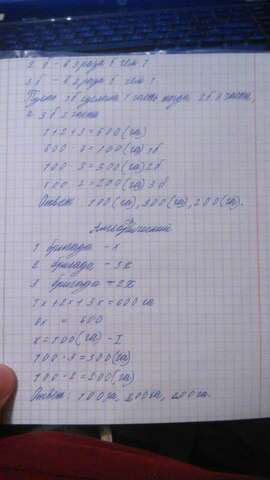 2 б - в 3 раза б чем 1
3 б - в 2 раза б чем 1
Пусть 1б сделала 1 часть тогда 2б 3 части,
а 3б 2 части
1+2+3=600(га)
600 : 6=100(га) 1б
100 · 3=300(га) 2б
100 · 2=200(га) 3б
Ответ: 100(га), 300(га), 200(га).
Алгебраический
1 бригада - x
2 бригада - 3x
3 бригада = 2x
1x+2x+3x=600га
6x = 600
x=100(га) - I
100 · 3=300(га)
100 · 2=200(га)
Ответ: 100га, 200га,